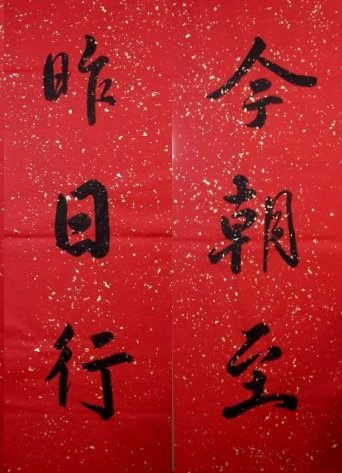 今朝至
昨日行